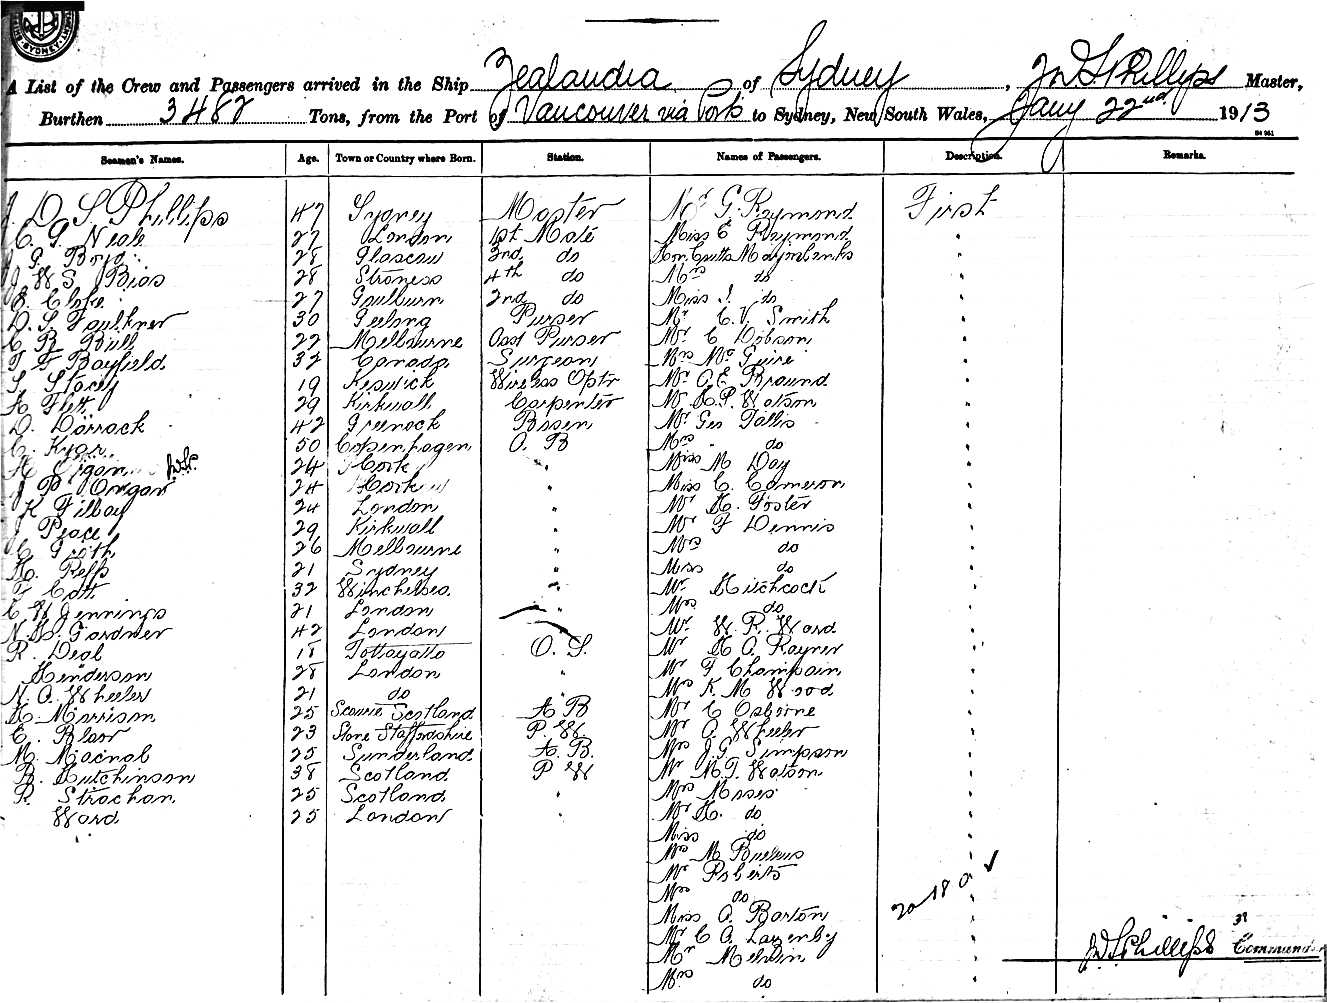 SYDNEY
A List of the Crew and Passengers arrived in the Ship Zealandia of Sydney, J D S Phillips Master,
Burthen 3482 Tons, from the Port of Vancouver via Ports to Sydney, New South Wales, Jany 22nd 1913
Seamen's Names. Age. Town or Country where Born. Station. Names of Passengers. Description. Remarks.
J. D S Phillips 47 Sydney Master G. Raymond First
C. G. Neale 27 London 1st Mate Miss E Raymond "
J G. 28 Glascow 2nd do "
J W S Bias 28 Stroness 4th do Mrs do "
27 Goulburn 2nd do Miss I. do "
D. S Faulkner 30 Geelong Purser Mr C. V. Smith "
C R Bull 22 Melbourne Asst Purser Mr C Dobson "
T F Bayfield 32 Canada Surgeon Mrs Mc Guire "
S Stacey 19 Keswick Wireless Optr Mr O. E. Bround "
A Flett 29 Kirkwall Carpenter Mr H. P. Watson "
D. Dorrock 42 Greenock Bosen Mr Geo Fallis "
C. 50 Copenhagen A. B Mrs do "
24 Cork " Miss M Day "
J P Organ J.D.S.P. 24 Cork " Miss C. Cameron "
K Filbay 24 London " Mr H. Foster "
J Peace 29 Kirkwall " Mr F Dennis "
C Groth 26 Melbourne " Mrs do "
H. 21 Sydney " Miss do "
F Catt 32 Winchelsea " Mr Hitchcock "
C W Jennings 21 London " Mrs do "
N. H. Gardner 42 London Mr W. R. Ward "
R. Deal 18 O. S. Mr H A. Rayner "
Henderson 28 London " Mr F Champain "
N. A. Wheeler 21 do " Mrs K M Wood "
H. Morrison 25 Scourie Scotland A B Mr C Osborne "
E. Blair 23 Stone Staffordshire P. W. Mr A. Wheeler "
M. Macnab 25 Sunderland A. B. Mrs J. G. Simpson "
B. Hutchinson 38 Scotland P W Mr M. F. Watson "
R. Strachan 25 Scotland " Mrs Moses "
Ward 25 London " Mr H. do "
Miss do "
Mrs M "
Mr Roberts "
Mrs do
Miss A. Barton
Mr C A. Lazenby
Mr Melvin
Mrs do
J D S Phillips Commander